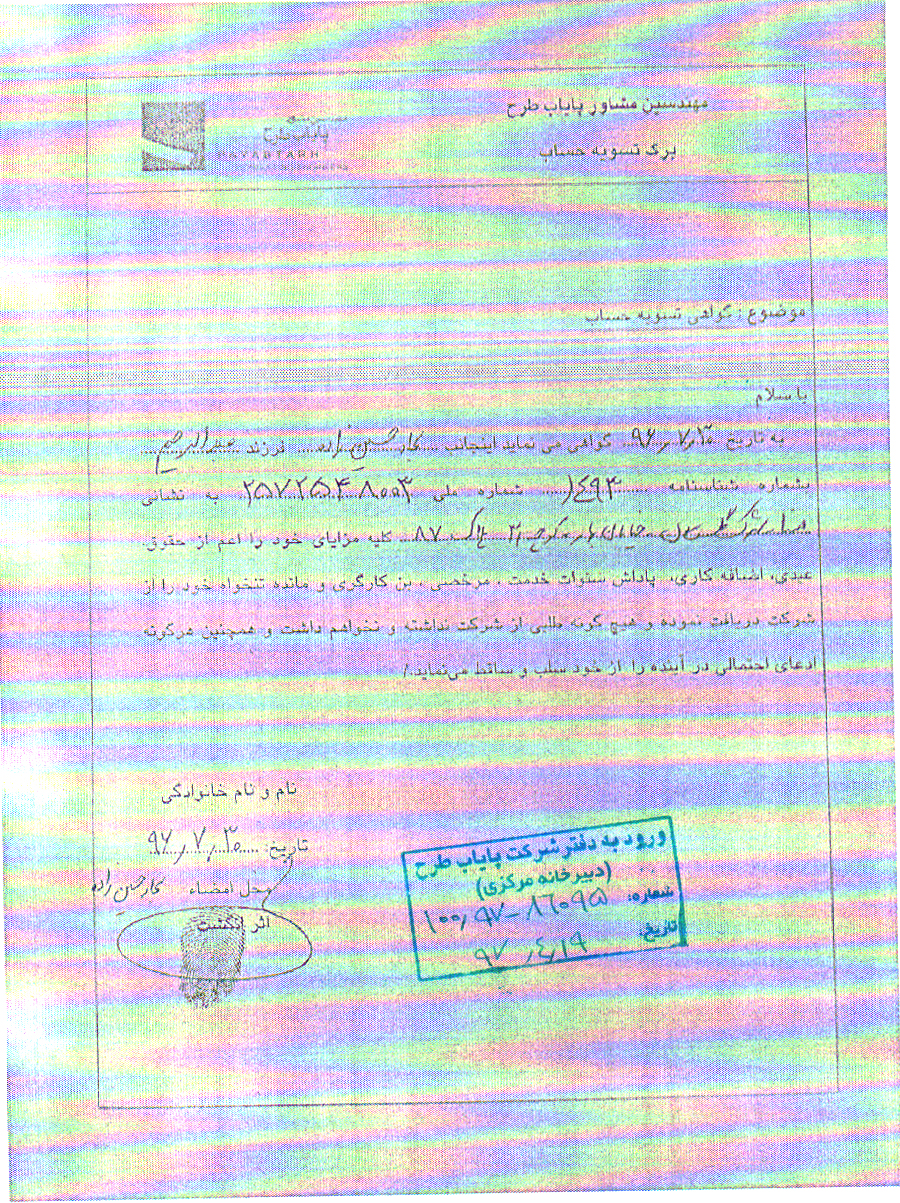 مهندسین مشاور پایاب طرح
پایاب طرح
PAYABTARH
برگ تسویه حساب
موضوع : گواهی تسویه حساب
با سلام
به تاریخ ۹۶٫۷٫۳۰ گواهی می نماید اینجانب زاده فرزند عبدالرحیم
بشماره شناسنامه شماره ملی ۲۵۷۲۵۴۸۰۰۳ به نشانی
پلاک ۸۷ کلیه مزایای خود را اعم از حقوق
عیدی، اضافه کاری، پاداش سنوات خدمت ، مرخصی ، بن کارگری و مانده تنخواه خود را از
شرکت دریافت نموده و هیچ گونه طلبی از شرکت نداشته و نخواهم داشت و همچنین هرگونه
ادعای احتمالی در آینده را از خود سلب و ساقط می‌نماید./
نام و نام خانوادگی
تاریخ: ۹۶٫۷٫۳۰
محل امضاء
اثر انگشت
ورود به دفتر شرکت پایاب طرح
(دبیرخانه مرکزی)
شماره: ۱۰۰٫۹۷-۸۶۰۹۵
تاریخ: ۹۷٫۴٫۱۹